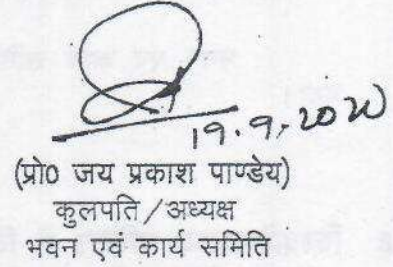 19.9.2020
(प्रो0 जय प्रकाश पाण्डेय)
कुलपति/अध्यक्ष
भवन एवं कार्य समिति